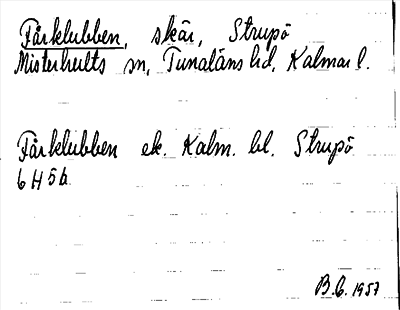 Fårklubben, skär, Strupö
Misterhults sn, Tunaläns hd, Kalmar l.
Fårklubben ek. Kalm. bl. Strupö
6 H 5 b
B.C. 1957